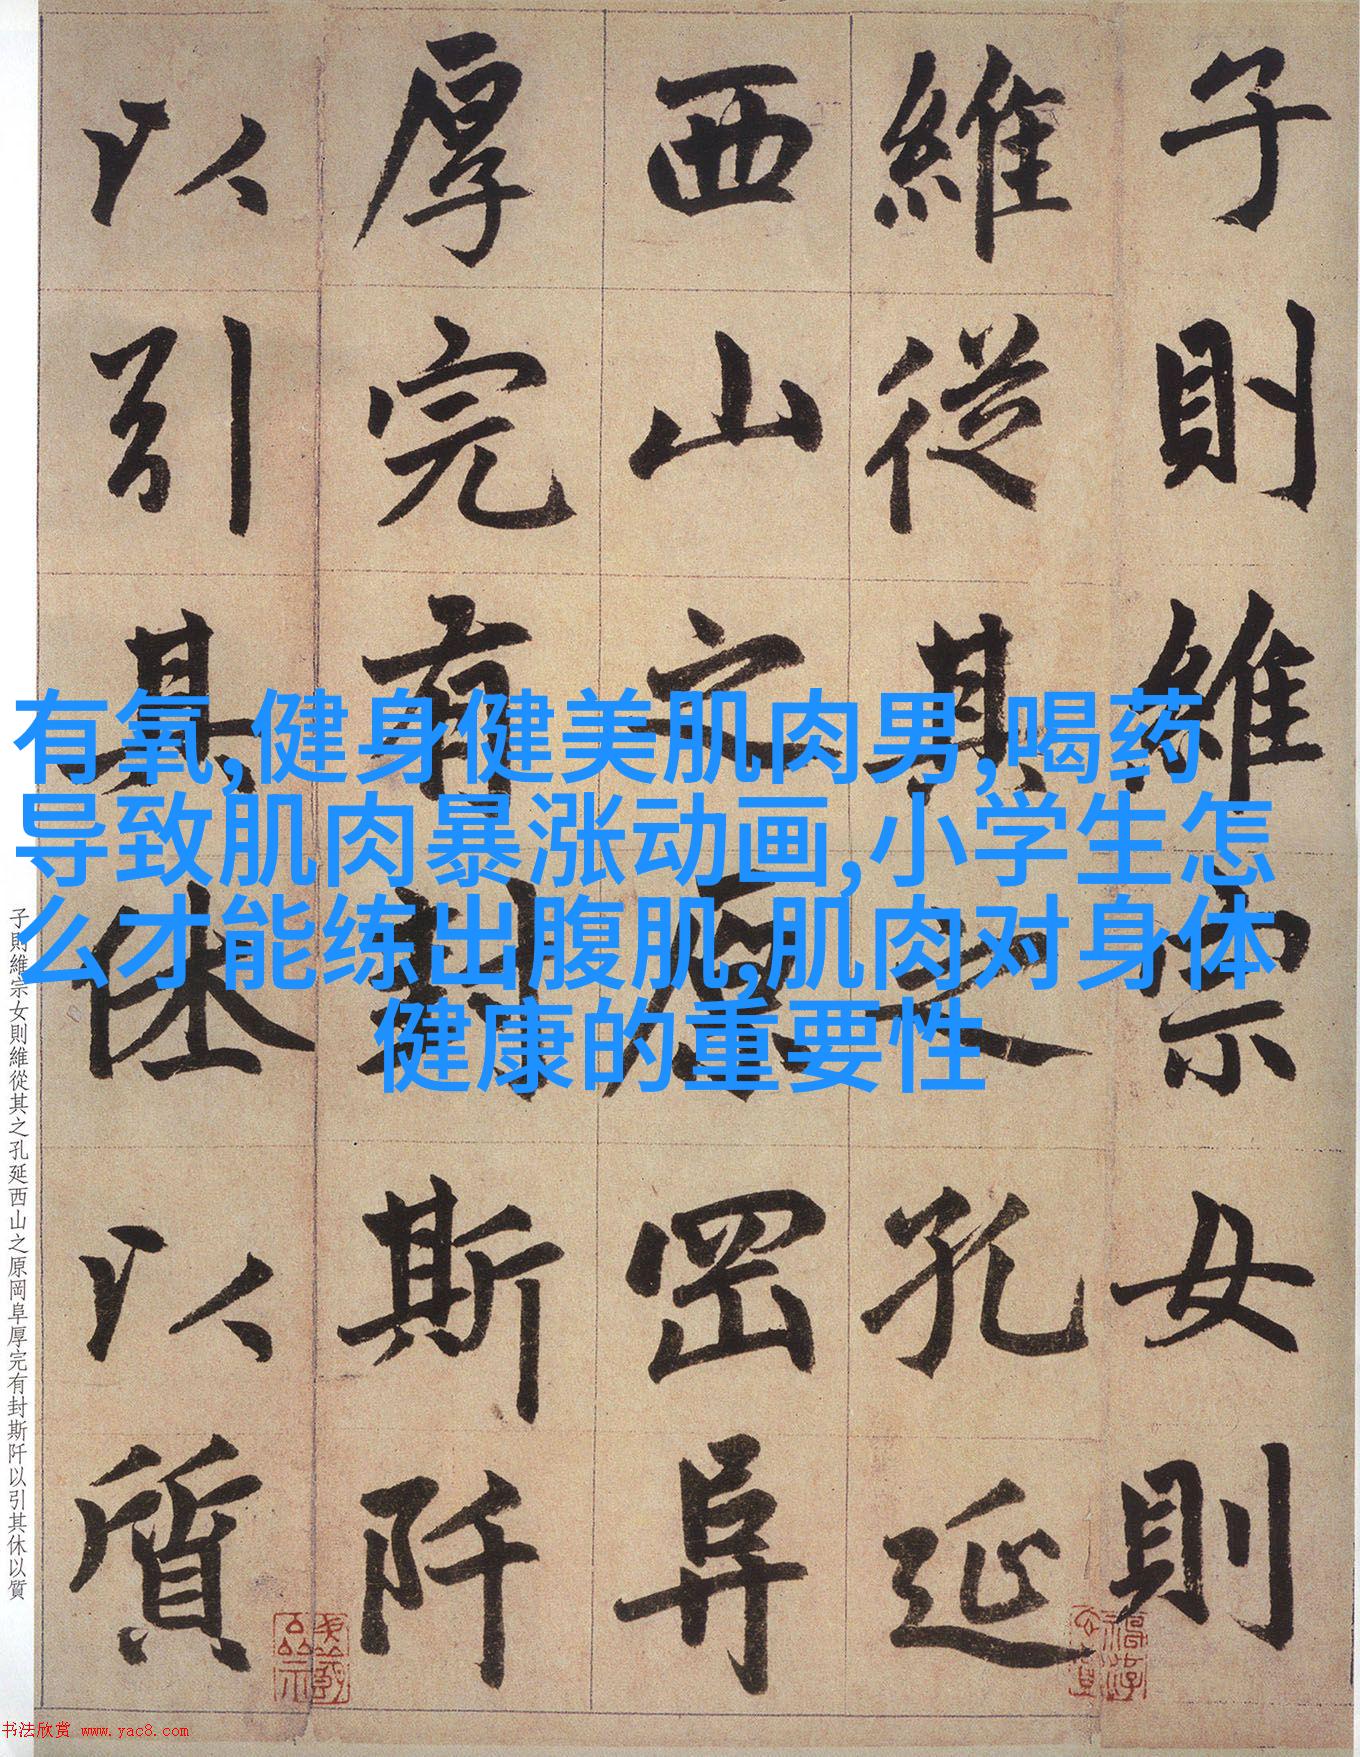 子則維宗女則
維從其之孔延
西山之原罡阜
厚完有封斯阡
以引其休以質
有氧,健身健美肌肉男,喝药
导致肌肉暴涨动画,小学生怎
么才能练出腹肌,肌肉对身体
健康的重要性
子則維宗女則維從其之孔延西山之原岡阜厚完有封斯阡以引其休以質
书法欣赏 www.yac8.com